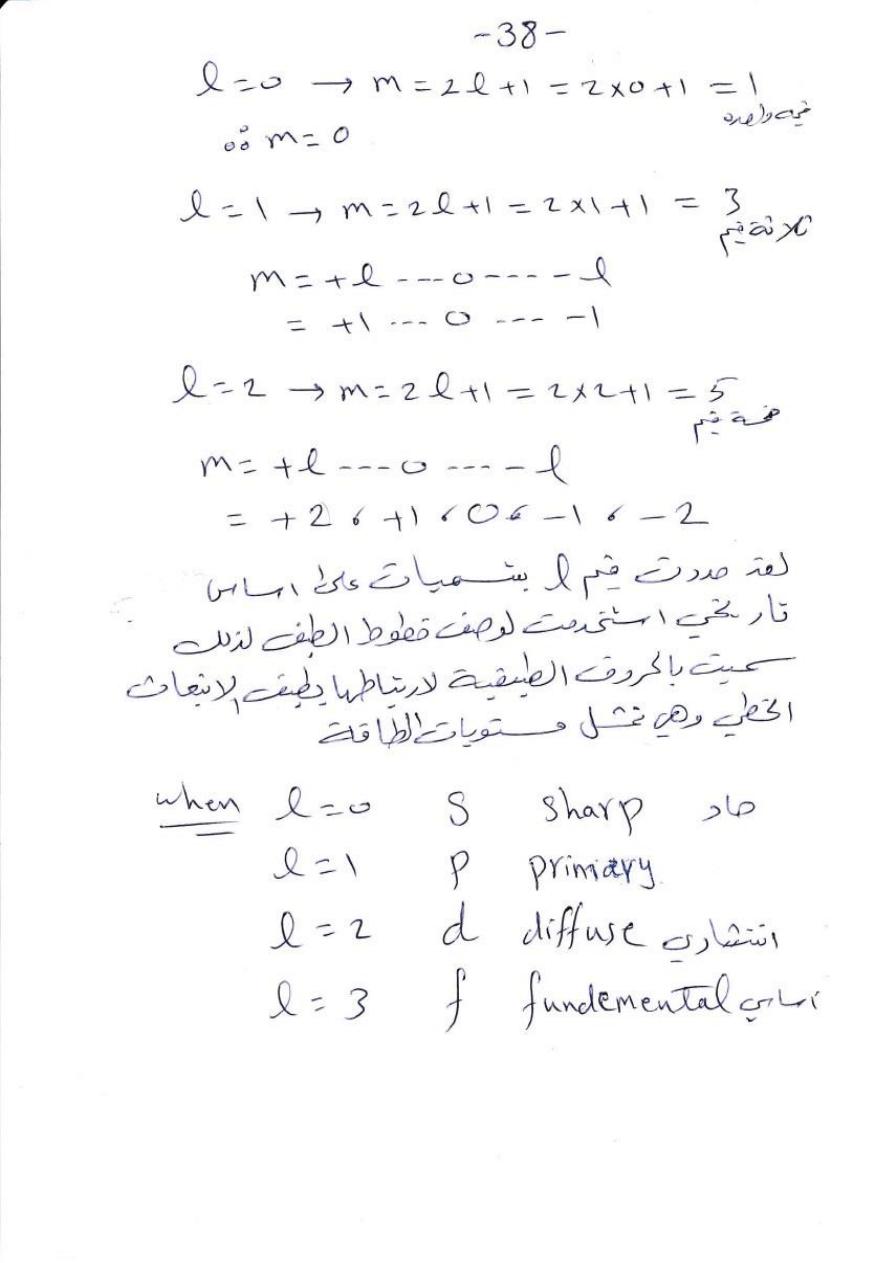 -38-
l=0 → m=2l+1=2x0+1=1
قيمة واحدة
∴ m=0
l=1 → m=2l+1=2x1+1=3
ثلاثة قيم
m=+l ---0---- -l
= +1 ---0 --- -1
l=2 → m=2l+1=2x2+1=5
خمسة قيم
m=+l ---0 --- -l
= +2، +1، 0، -1، -2
لقد حددت قيم l بتسميات على اساس
تاريخي استخدمت لوصف خطوط الطيف لذلك
سميت بالحروف الطيفية لارتباطها بطيف الانبعاث
الخطي وهي تمثل مستويات الطاقة
when l=0 S sharp حاد
l=1 P primary
l=2 d diffuse انتشاري
l=3 f fundemental اساسي